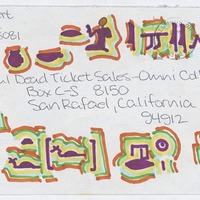 rt
5081
ul Dead Ticket Sales - Omni Col
Box C-S 8150
San Rafael, California
94912